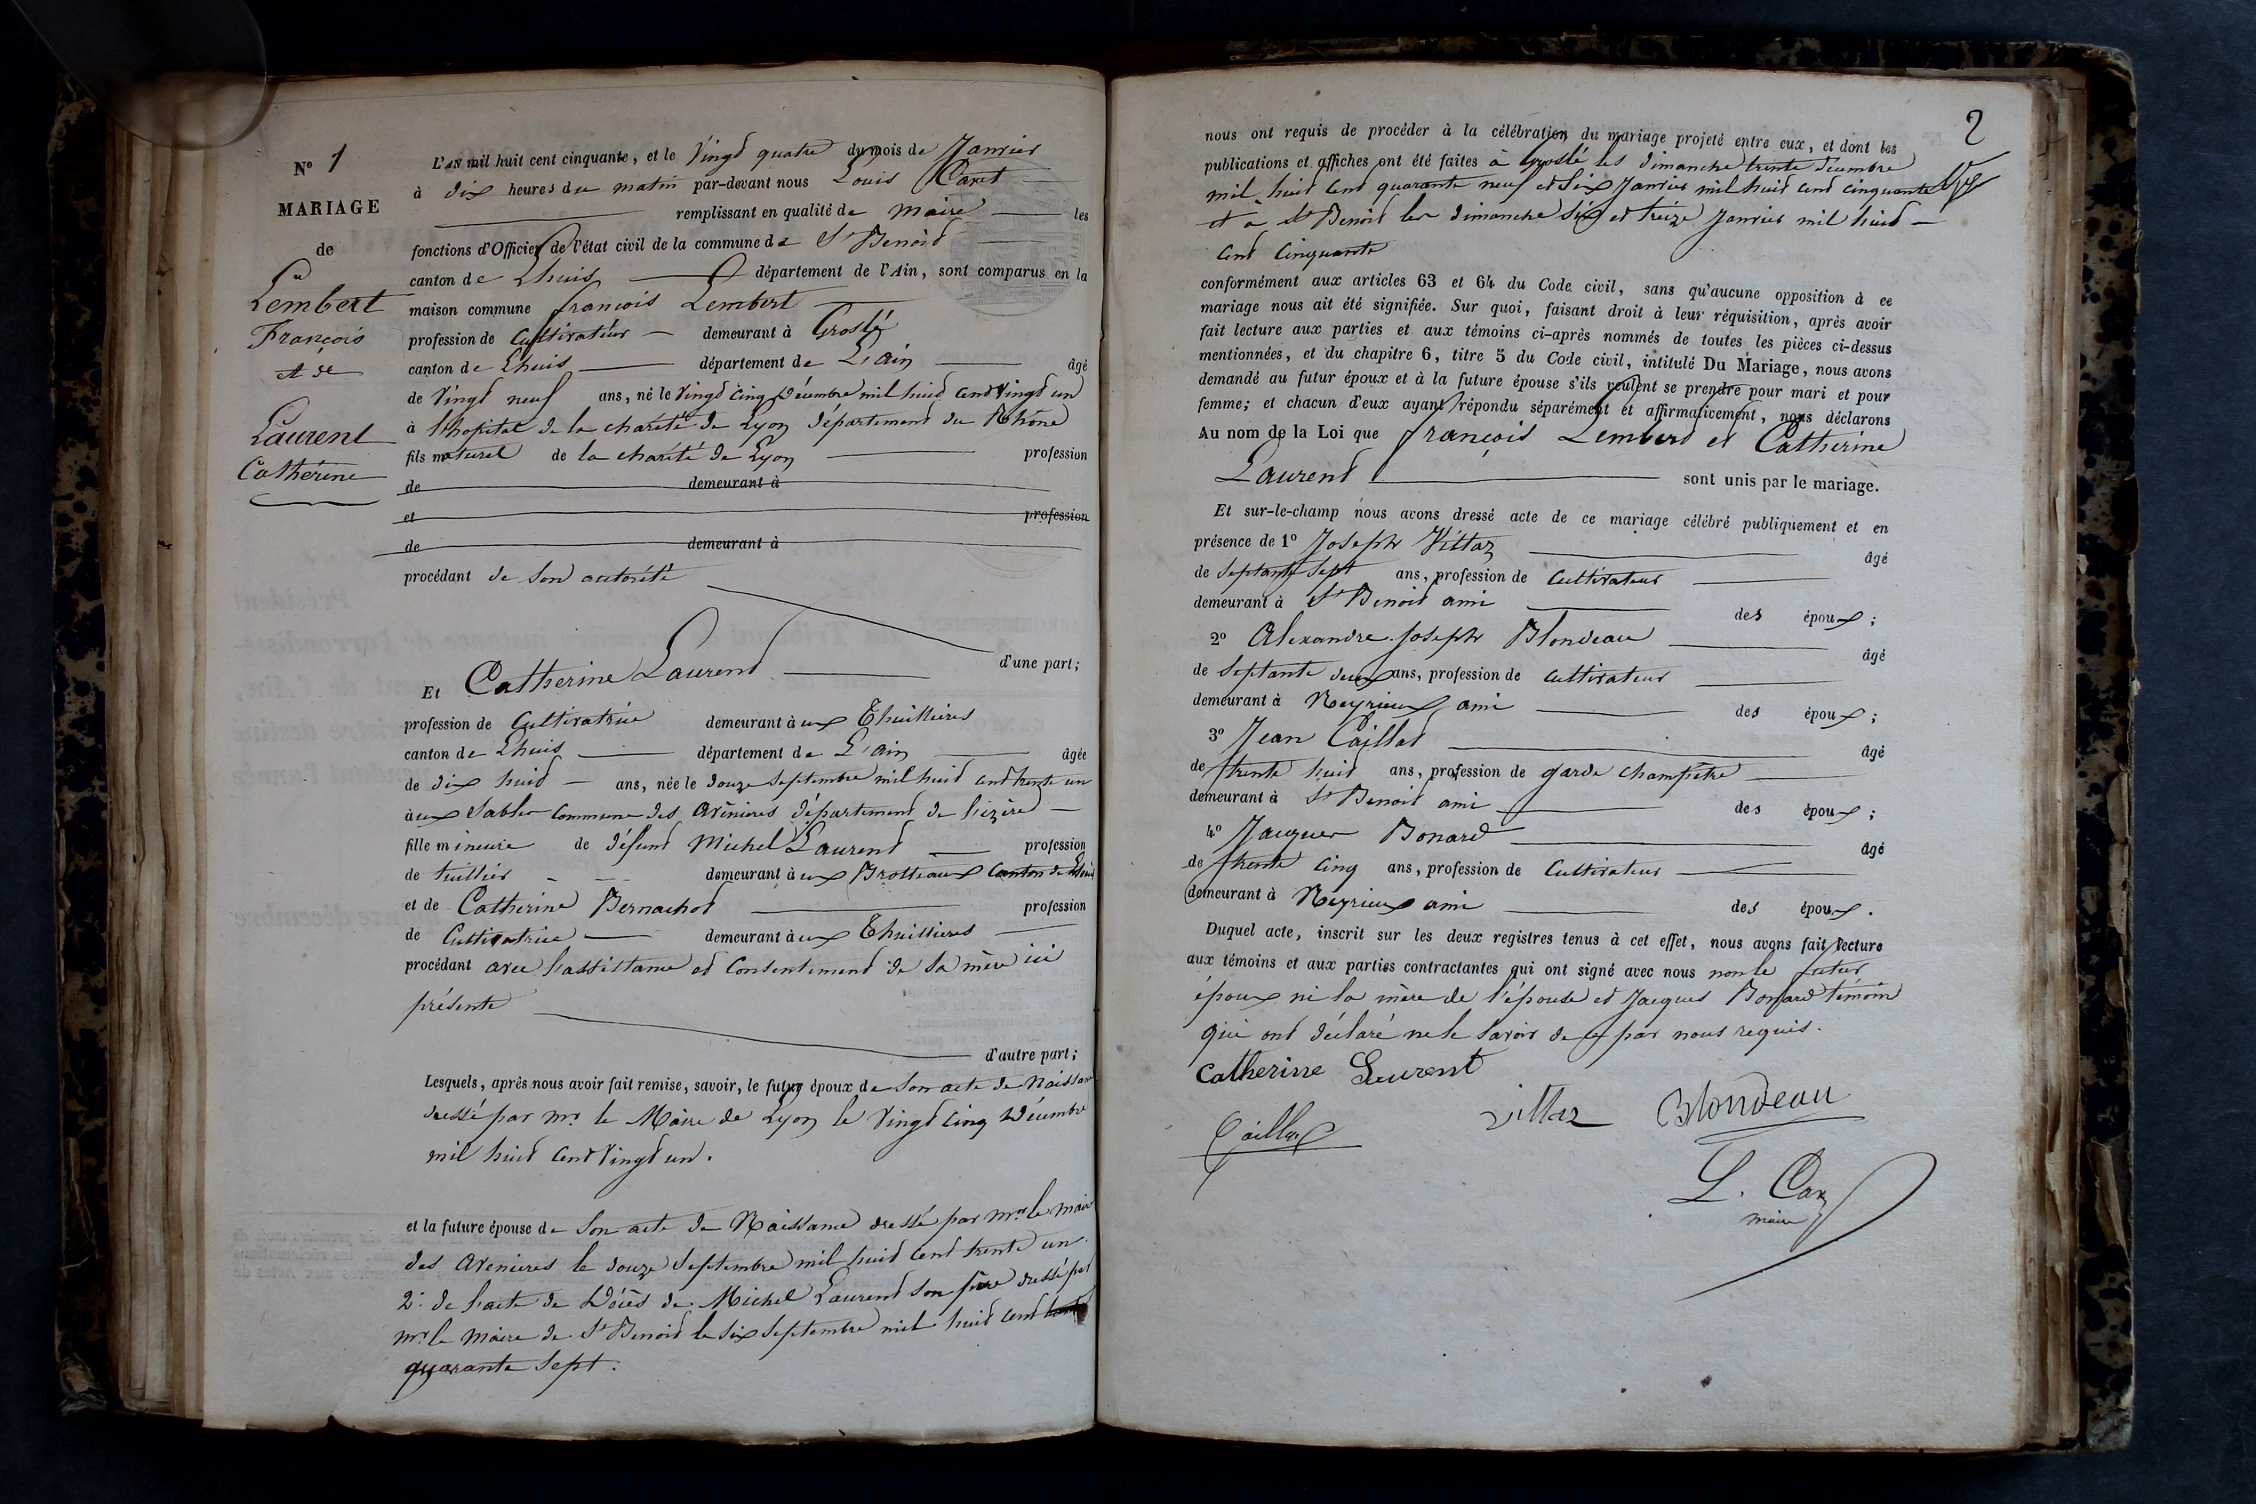 N° 1
MARIAGE
de
Lembert
François
et de
Laurent
Catherine
L'AN mil huit cent cinquante, et le Vingt quatre du mois de Janvier
à dix heures du matin par-devant nous Louis Caret
remplissant en qualité de maire les
fonctions d'Officier de l'état civil de la commune de St Benoit
canton de Lhuis département de l'Ain, sont comparus en la
maison commune françois Lembert
profession de Cultivateur demeurant à Groslé
canton de Lhuis département de L'ain âgé
de Vingt neuf ans, né le Vingt cinq Décembre mil huit cent Vingt un
à l'hopital de la charité de Lyon département du Rhône
fils naturel de la charité de Lyon profession
de demeurant à
et profession
de demeurant à
procédant de son autorité
d'une part;
Et Catherine Laurent
profession de Cultivatrice demeurant à ux Thuillieres
canton de Lhuis département de L'ain âgée
de dix huit ans, née le douze Septembre mil huit cent trente un
à ux Sables Commune des Avenieres département de l'izère
fille mineure de défunt Michel Laurent profession
de tuillier demeurant à ux Brotteaux Canton de Lhuis
et de Catherine Bernachot profession
de Cultivatrice demeurant à ux Thuillieres
procédant avec l'assistance et Consentement de sa mère ici
présente
d'autre part;
Lesquels, après nous avoir fait remise, savoir, le futur époux de son acte de Naissance
dressé par mr. le Maire de Lyon le Vingt cinq Décembre
mil huit cent Vingt un.
et la future épouse de son acte de Naissance dressé par mr. le maire
des Avenieres le douze Septembre mil huit cent trente un.
2° de l'acte de Décès de Michel Laurent son père dressé par
mr. le Maire de St Benoit le six Septembre mil huit cent
quarante sept.
2
nous ont requis de procéder à la célébration du mariage projeté entre eux, et dont les
publications et affiches ont été faites à Groslé les dimanche trente Décembre
mil huit cent quarante neuf et six Janvier mil huit cent cinquante
et a St Benoit les dimanche six et treize Janvier mil huit
cent cinquante
conformément aux articles 63 et 64 du Code civil, sans qu'aucune opposition à ce
mariage nous ait été signifiée. Sur quoi, faisant droit à leur réquisition, après avoir
fait lecture aux parties et aux témoins ci-après nommés de toutes les pièces ci-dessus
mentionnées, et du chapitre 6, titre 5 du Code civil, intitulé Du Mariage, nous avons
demandé au futur époux et à la future épouse s'ils veulent se prendre pour mari et pour
femme; et chacun d'eux ayant répondu séparément et affirmativement, nous déclarons
Au nom de la Loi que françois Lembert et Catherine
Laurent sont unis par le mariage.
Et sur-le-champ nous avons dressé acte de ce mariage célébré publiquement et en
présence de 1° Joseph Vittoz âgé
de Septante Sept ans, profession de Cultivateur
demeurant à St Benoit ami des époux;
2° Alexandre Joseph Blondeau âgé
de Septante deux ans, profession de Cultivateur
demeurant à Neyrieux ami des époux;
3° Jean Caillat âgé
de trente huit ans, profession de garde champêtre
demeurant à St Benoit ami des époux;
4° Jacques Bonard âgé
de trente cinq ans, profession de Cultivateur
demeurant à Neyrieux ami des époux.
Duquel acte, inscrit sur les deux registres tenus à cet effet, nous avons fait lecture
aux témoins et aux parties contractantes qui ont signé avec nous non le futur
époux ni la mère de l'épouse et Jacques Bonard témoin
qui ont déclaré ne le savoir de ce par nous requis.
Catherine Laurent
Vittoz Blondeau
Caillat
L. Car
maire